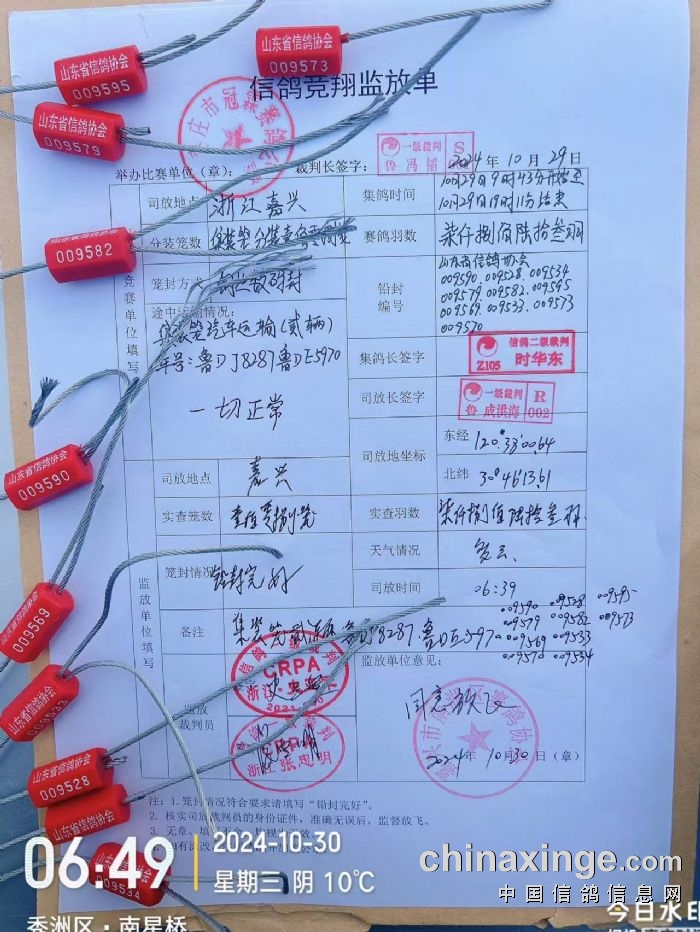 山东省信鸽协会
009595
山东省信鸽协会
009573
山东省信鸽协会
009579
009582
山东省信鸽协会
009590
山东省信鸽协会
009569
山东省信鸽协会
山东省信鸽协会
009528
山东省信鸽协会
009534
信鸽竞翔监放单
举办比赛单位（章）：
裁判长签字：
一级裁判 S
鲁 冯
2024年10月29日
竞赛单位填写
司放地点
浙江嘉兴
集鸽时间
10月29日9时43分开始至
10月29日19时11分结束
分装笼数
赛鸽羽数
柒仟捌佰陆拾叁羽
笼封方式
铅封编号
山东省信鸽协会
009590.009528.009534
009579.009582.009595
009569.009533.009573
009570
途中运输情况：
集装笼汽车运输（贰辆）
车号：鲁DJ8287鲁DE5970
一切正常
集鸽长签字
信鸽二级裁判
Z105 时华东
司放长签字
一级裁判 R
鲁 成洪海 002
司放地坐标
东经
120°38′00.64
北纬
30°46′13.61
监放单位填写
司放地点
嘉兴
实查笼数
实查羽数
柒仟捌佰陆拾叁羽
笼封情况
铅封完好
天气情况
多云
司放时间
06:39
备注
鲁DJ8287.鲁DE5970
009590 009528 009595
009579 009582 009573
009569 009533
009570 009534
监放裁判员
CRPA
浙江
浙江 张忠明
监放单位意见：
同意放飞
2024年10月30日（章）
注：1.笼封情况符合要求请填写“铅封完好”。
2.核实司放裁判员的身份证件，准确无误后，监督放飞。
3.无章、填
06:49
2024-10-30
星期三 阴 10℃
秀洲区·南星桥
chinaxinge.com
中国信鸽信息网
今日水印